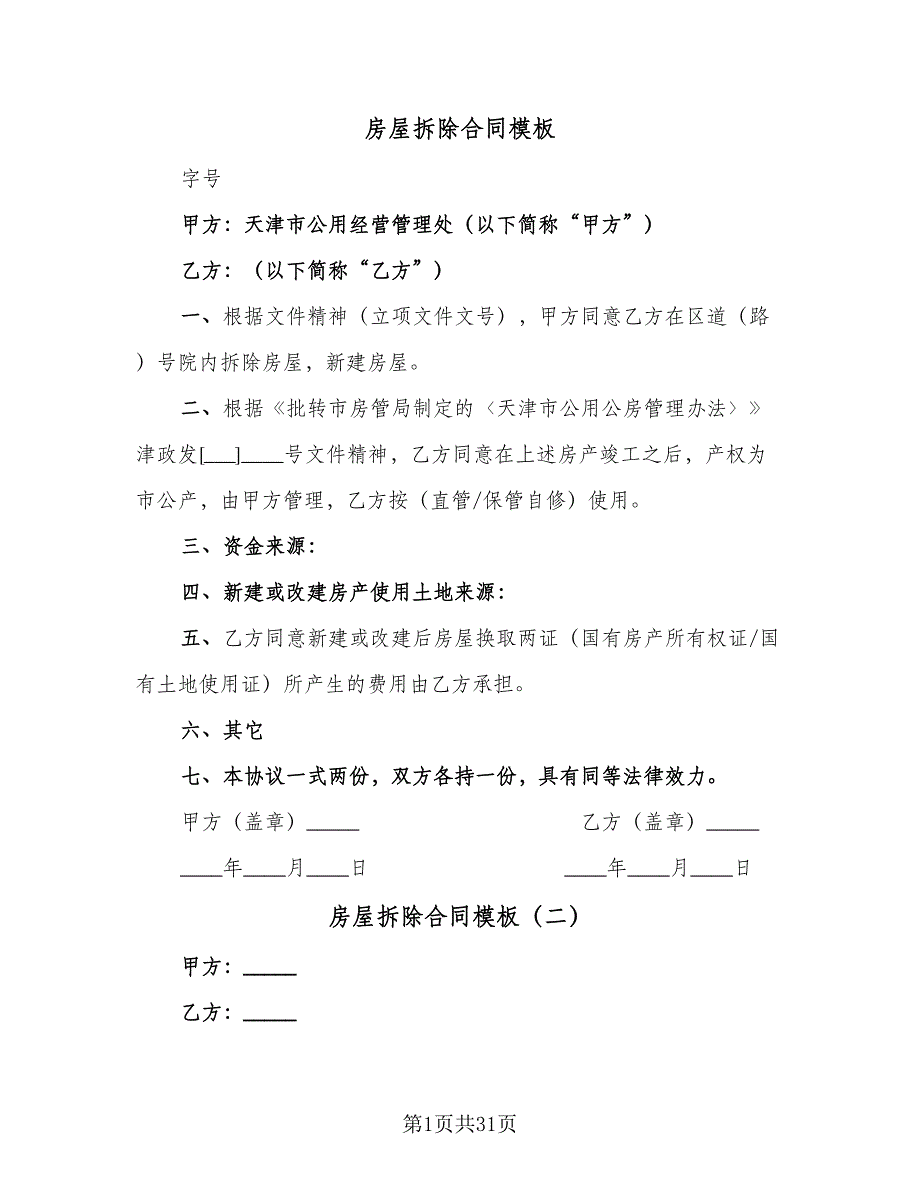 房屋拆除合同模板
字号
甲方：天津市公用经营管理处（以下简称“甲方”）
乙方：（以下简称“乙方”）
一、根据文件精神（立项文件文号），甲方同意乙方在区道（路
）号院内拆除房屋，新建房屋。
二、根据《批转市房管局制定的〈天津市公用公房管理办法〉》
津政发[___]____号文件精神，乙方同意在上述房产竣工之后，产权为
市公产，由甲方管理，乙方按（直管/保管自修）使用。
三、资金来源：
四、新建或改建房产使用土地来源：
五、乙方同意新建或改建后房屋换取两证（国有房产所有权证/国
有土地使用证）所产生的费用由乙方承担。
六、其它
七、本协议一式两份，双方各持一份，具有同等法律效力。
甲方（盖章）_____ 乙方（盖章）_____
____年____月____日 ____年____月____日
房屋拆除合同模板（二）
甲方：_____
乙方：_____
第1页共31页